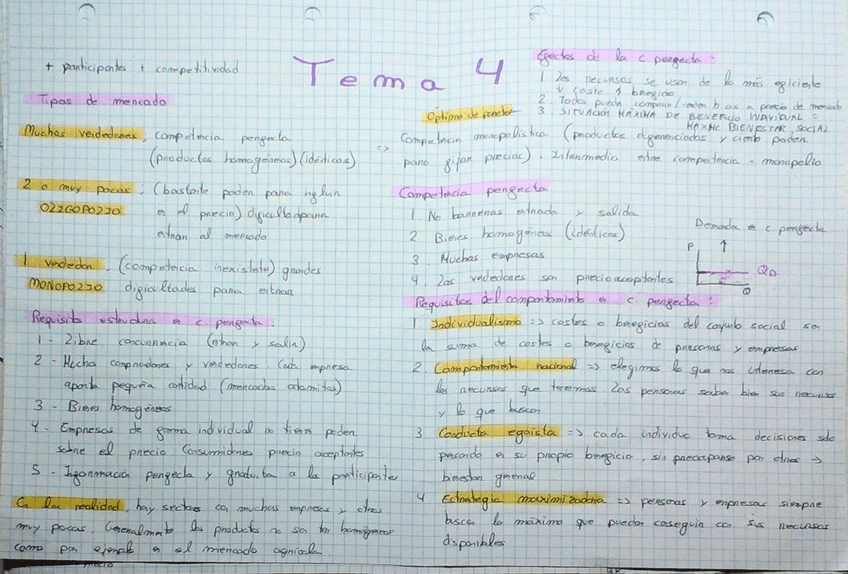 Tema 4
+ participantes + competitividad
Tipos de mercado
Muchas vendedores, competencia perfecta
(productos homogéneos) (idénticos)
2 o muy pocas, (bastante poder para influir
OLIGOPOLIO en el precio) dificultad para
entrar al mercado
1 vendedor, (competencia inexistente) grandes
MONOPOLIO dificultades para entrar
Requisitos estructura en c perfecta:
1 - Libre concurrencia (entrar y salir)
2 - Muchos compradores y vendedores Cada empresa
aporta pequeña cantidad (mercados atomistas)
3 - Bienes homogéneos
4 - Empresas de forma individual no tienen poder
sobre el precio Consumidores precio aceptantes
5 - Información perfecta y gratuita a la participantes
En la realidad, hay sectores con muchas empresas y otros
muy pocas. Generalmente los productos no son tan homogéneos
como por ejemplo en el mercado agrícola
Efectos de la c perfecta:
1 Los recursos se usan de lo más eficiente
↓ coste ↑ beneficio
2 Todos puede comprar/vender b as a precio de mercado
3. SITUACIÓN MAXIMA DE BENEFICIO INDIVIDUAL =
MAXIMO BIENESTAR SOCIAL
Óptimo de pareto
=> Competencia monopolística (productos diferenciados y cierto poder
para fijar precios). Intermedio entre competencia - monopolio
Competencia perfecta
1 No barreras entrada y salida
2 Bienes homogéneos (idénticos)
3. Muchas empresas
4 Los vendedores son precioaceptantes
Demada en c perfecta
P
QD
Q
Requisitos del comportamiento en c perfecta:
1 Individualismo => costes o beneficios del conjunto social son
la suma de costes o beneficios de personas y empresas
2 Comportamiento racional => elegimos lo que nos interesa con
los recursos que tenemos Las personas saben bien sus recursos
y lo que buscan
3 Conducta egoísta => cada individuo toma decisiones solo
pensando en su propio beneficio, sin preocuparse por otros ->
bienestar general
4 Estrategia maximizadora => personas y empresas siempre
buscan lo máximo que puedan conseguir con sus recursos
disponibles